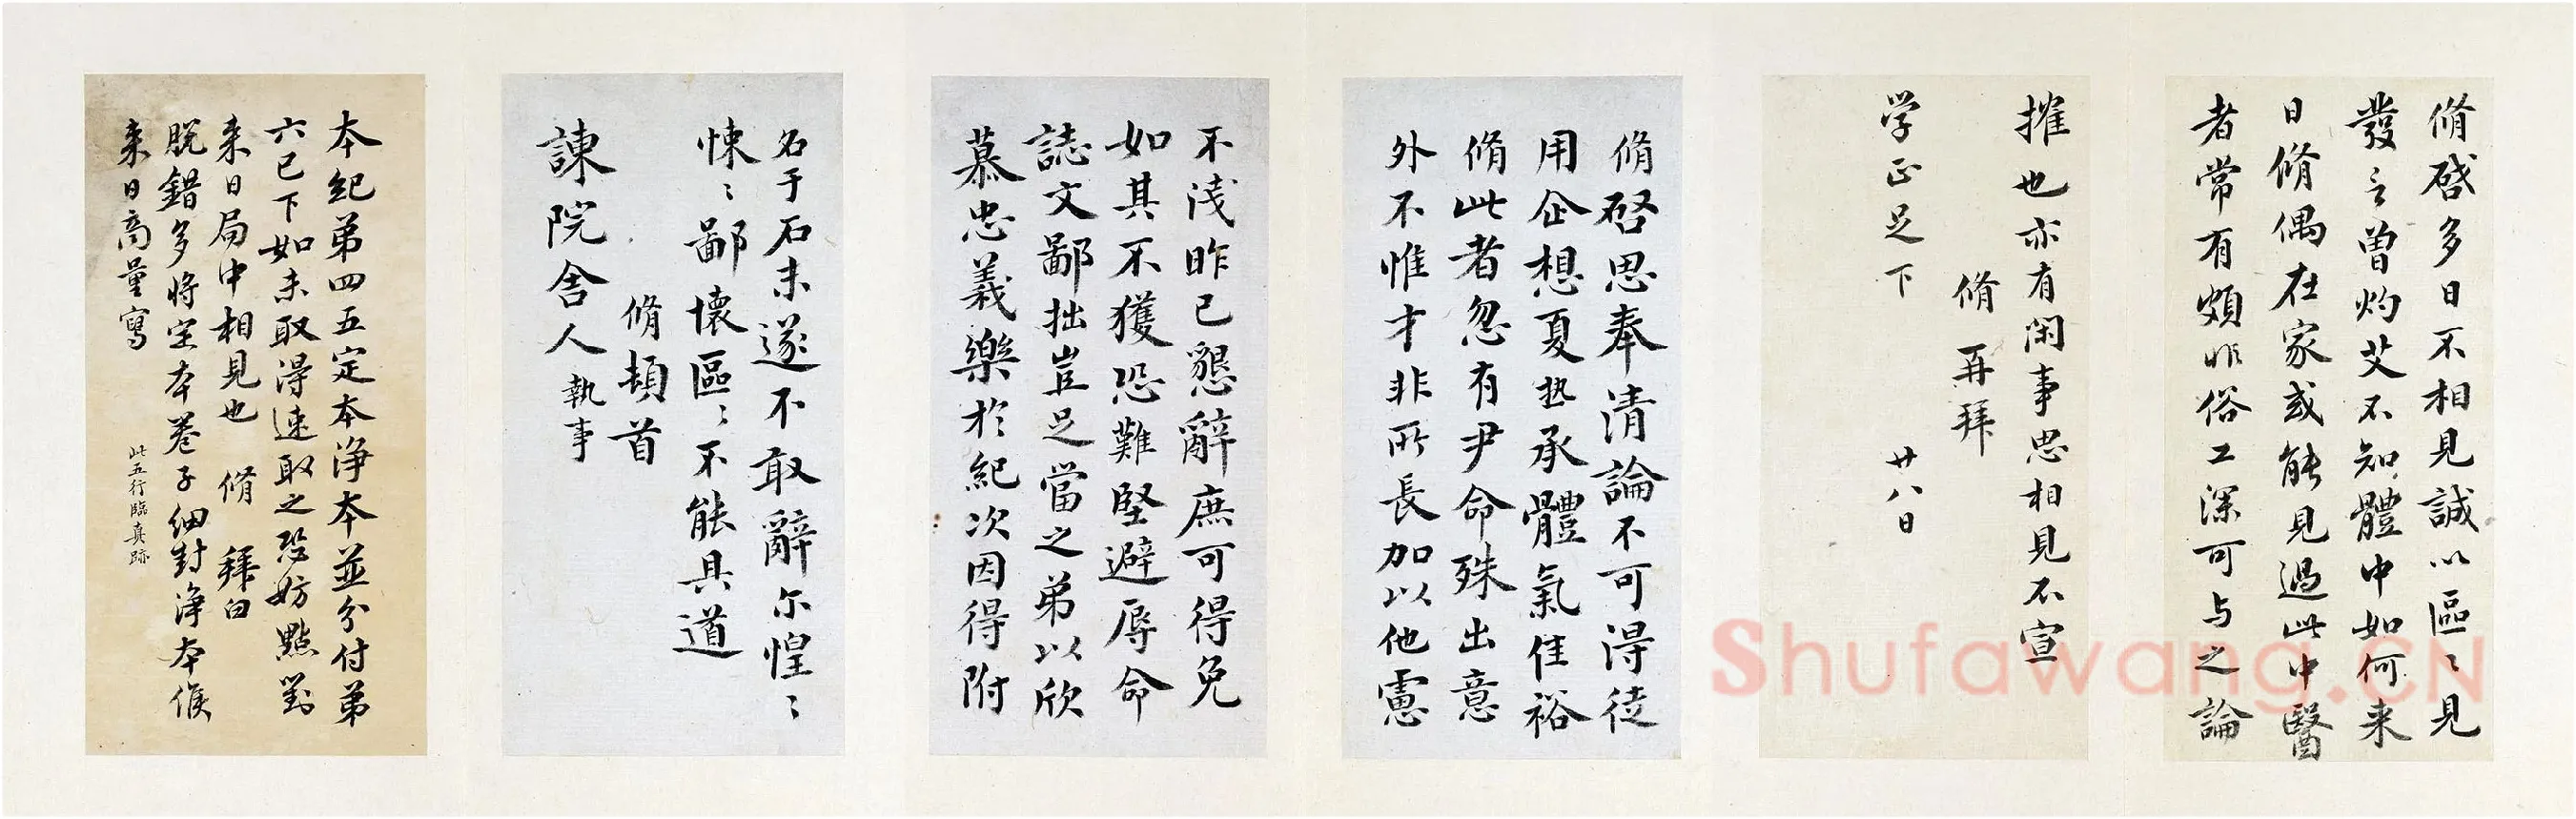 脩啓多日不相見誠以區〻見
發言曾灼艾不知體中如何来
日脩偶在家或能見過此中醫
者常有頗非俗工深可与之論
搉也亦有閑事思相見不宣
脩再拜
学正足下 廿八日
脩啓思奉清論不可得徒
用企想夏热承體氣佳裕
脩此者忽有尹命殊出意
外不惟才非所長加以他慮
不淺昨已懇辭庶可得免
如其不獲恐難堅避辱命
誌文鄙拙豈足當之弟以欣
慕忠義樂於紀次因得附
名于石未遂不敢辭尓惶〻
悚〻鄙懷區〻不能具道
脩頓首
諫院舍人執事
本紀弟四五定本淨本並分付弟
六已下如未取得速取之恐妨點對
来日局中相見也 脩 拜白
脱錯多将定本卷子細對淨本候
来日商量寫
此五行臨真跡
Shufawang.CN